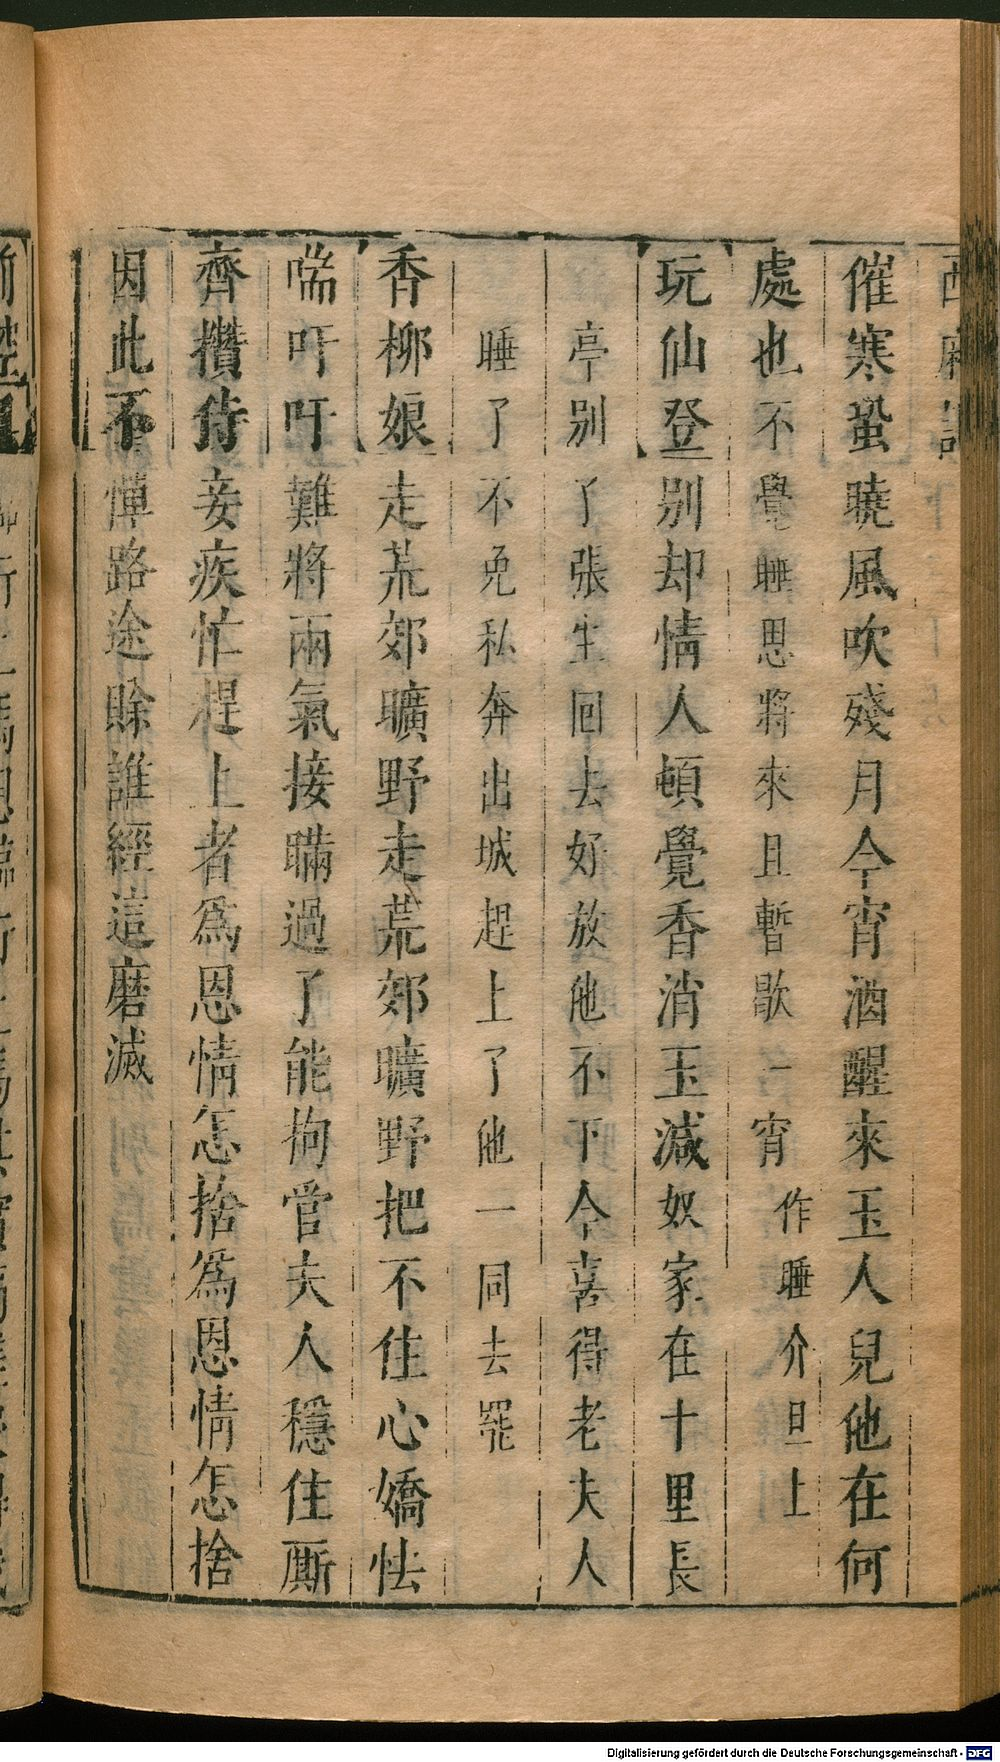 催寒蛩曉風吹殘月今宵酒醒來玉人兒他在何
處也不覺睡思將來且暫歇一宵作睡介旦上
玩仙登別却情人頓覺香消玉減奴家在十里長
亭别了張生回去好放他不下今喜得老夫人
睡了不免私奔出城趕上了他一同去罷
香柳娘走荒郊曠野走荒郊曠野把不住心嬌怯
喘吁吁難將兩氣接瞞過了能拘管夫人穩住厮
齊攢侍妾疾忙趕上者爲恩情怎捨爲恩情怎捨
因此不憚路途賒誰經這磨滅
Digitalisierung gefördert durch die Deutsche Forschungsgemeinschaft - DFG